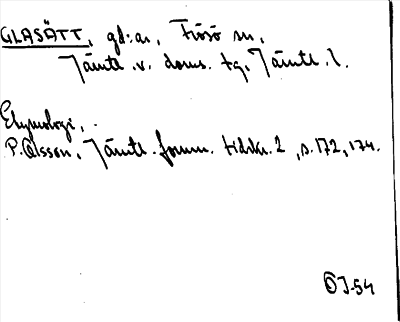 GLASÄTT, gd:ar, Frösö sn,
Jämtl. v. doms. tg, Jämtl. l.
Etymologi,
P. Olsson, Jämtl. fornm. tidskr. 2, s. 172, 174.
OJ-54